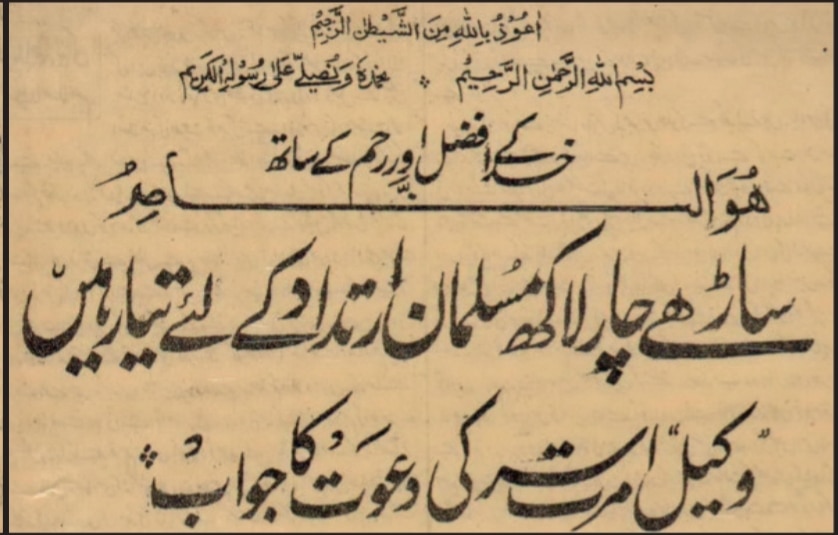 اعوذ باللہ من الشیطن الرجیم
بسم اللہ الرحمن الرحیم ۔ نحمدہ ونصلی علی رسولہ الکریم
خدا کے فضل اور رحم کے ساتھ
ھو الناصر
ساڑھے چار لاکھ مسلمان ارتداد کے لئے تیار ہیں
"وکیل" امرتسر کی دعوت کا جواب